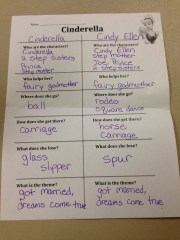 Cinderella
Cinderella
Cindy Ellen
Who are the characters?
Who are the characters?
Cinderella
2 step sisters
Prince
Step mother
Cindy Ellen
Step mother
Joe Prince
2 step sisters
Who helps her?
Who helps her?
fairy godmother
fairy godmother
Where does she go?
Where does she go?
ball
rodeo
square dance
How does she get there?
How does she get there?
carriage
horse
carriage
What does she lose?
What does she lose?
glass
slipper
spur
What is the theme?
What is the theme?
got married,
dreams come true
got married,
dreams come true